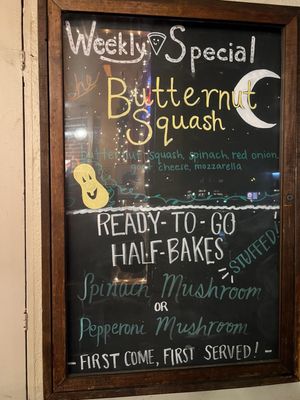 Weekly Special
the
Butternut
Squash
butternut squash, spinach, red onion,
goat cheese, mozzarella
READY-TO-GO
HALF-BAKES
STUFFED!
Spinach Mushroom
OR
Pepperoni Mushroom
- FIRST COME, FIRST SERVED! -